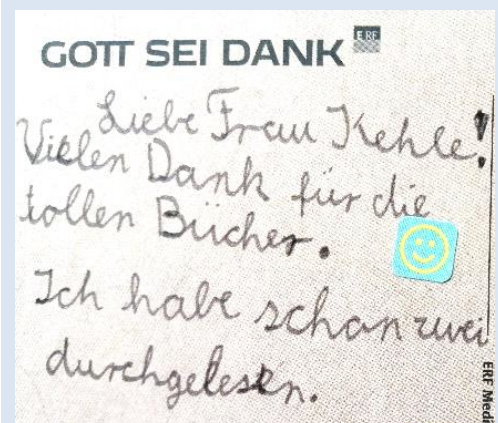 GOTT SEI DANK
ERF
Liebe Frau Kehle!
Vielen Dank für die
tollen Bücher.
Ich habe schon zwei
durchgelesen.
ERF Medi